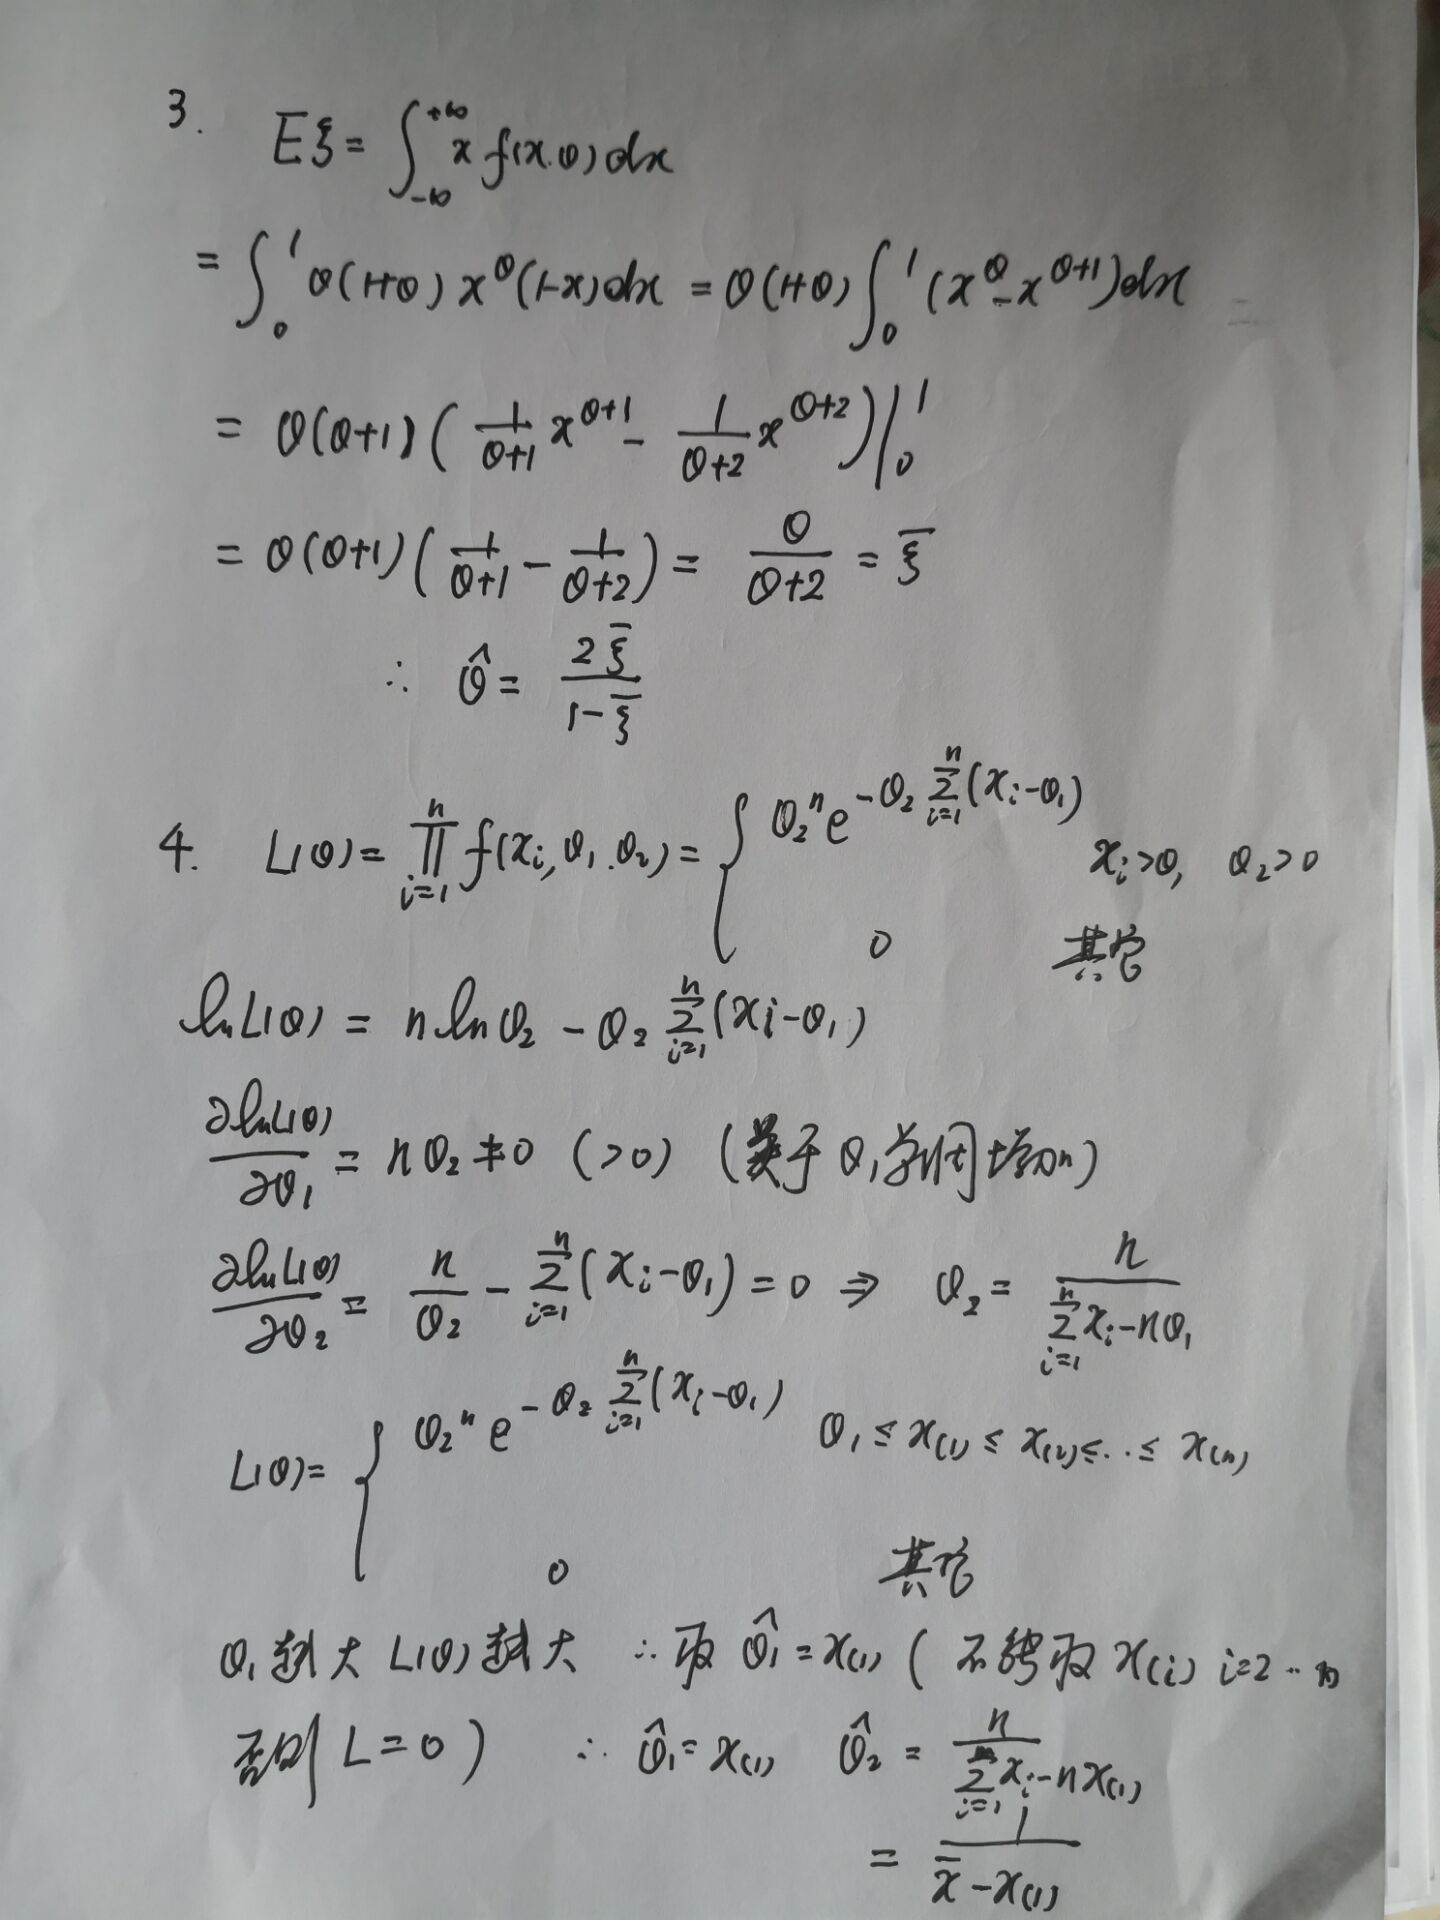 3. Eξ = ∫_{-∞}^{+∞} x f(x.θ) dx
= ∫_0^1 θ(1+θ) x^θ (1-x) dx = θ(1+θ) ∫_0^1 (x^θ - x^{θ+1}) dx
= θ(θ+1) ( \frac{1}{θ+1} x^{θ+1} - \frac{1}{θ+2} x^{θ+2} ) |_0^1
= θ(θ+1) ( \frac{1}{θ+1} - \frac{1}{θ+2} ) = \frac{θ}{θ+2} = \bar{ξ}
∴ \hat{θ} = \frac{2\bar{ξ}}{1-\bar{ξ}}
4. L(θ) = ∏_{i=1}^{n} f(x_i, θ_1.θ_2) = { θ_2^n e^{-θ_2 ∑_{i=1}^{n}(x_i-θ_1)} x_i>θ_1 θ_2>0
0 其它
ln L(θ) = n ln θ_2 - θ_2 ∑_{i=1}^{n} (x_i-θ_1)
\frac{∂ln L(θ)}{∂θ_1} = nθ_2 ≠ 0 (>0) (关于 θ_1 单调增加)
\frac{∂ln L(θ)}{∂θ_2} = \frac{n}{θ_2} - ∑_{i=1}^{n} (x_i-θ_1) = 0 ⇒ θ_2 = \frac{n}{∑_{i=1}^{n} x_i - nθ_1}
L(θ) = { θ_2^n e^{-θ_2 ∑_{i=1}^{n}(x_i-θ_1)} θ_1 ≤ x_{(1)} ≤ x_{(2)} ≤ .. ≤ x_{(n)}
0 其它
θ_1越大 L(θ)越大 ∴ 取 \hat{θ_1} = x_{(1)} ( 不能取 x_{(i)} i=2 .. n
否则 L=0 ) ∴ \hat{θ_1} = x_{(1)} \hat{θ_2} = \frac{n}{∑_{i=1}^{n} x_i - nx_{(1)}}
= \frac{1}{\bar{x} - x_{(1)}}